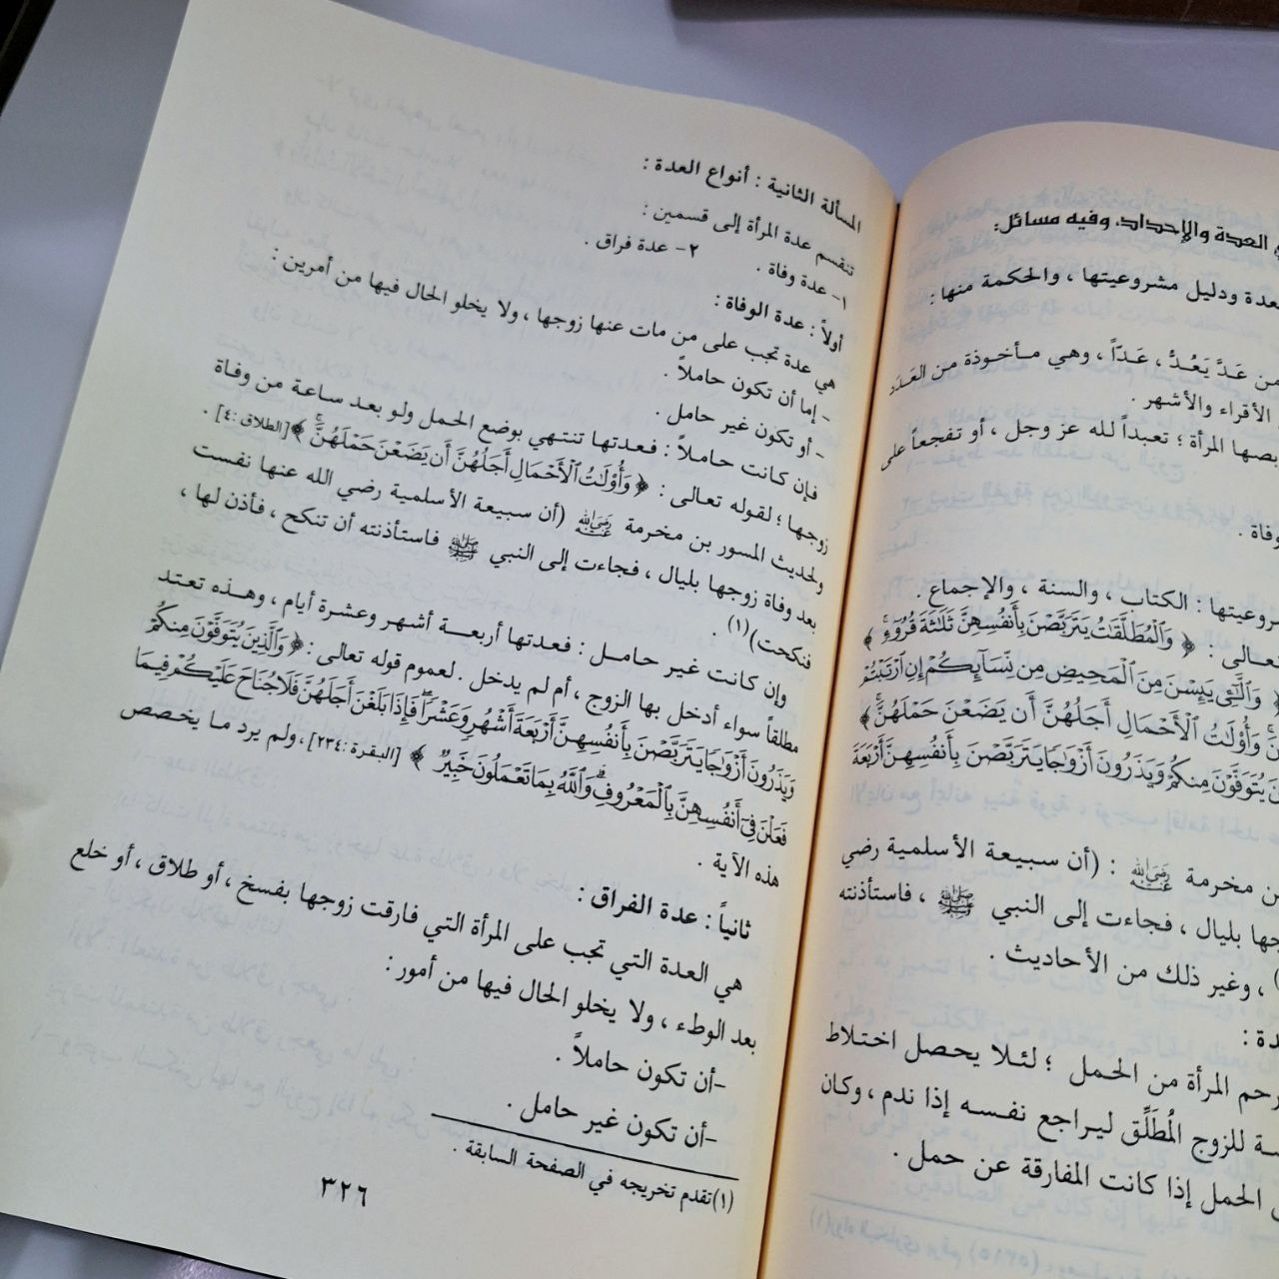 العدة والإحداد، وفيه مسائل:
لعدة ودليل مشروعيتها ، والحكمة منها :
من عَدَّ يَعُدُّ ، عَدّاً ، وهي مأخوذة من العَدَد
الأقراء والأشهر .
المرأة ؛ تعبداً لله عز وجل ، أو تفجعاً على
وفاة .
الكتاب ، والسنة ، والإجماع .
﴿ وَٱلْمُطَلَّقَٰتُ يَتَرَبَّصْنَ بِأَنفُسِهِنَّ ثَلَٰثَةَ قُرُوٓءٍ ﴾
وَٱلَّٰٓـِٔى يَئِسْنَ مِنَ ٱلْمَحِيضِ مِن نِّسَآئِكُمْ إِنِ ٱرْتَبْتُمْ
وَأُو۟لَٰتُ ٱلْأَحْمَالِ أَجَلُهُنَّ أَن يَضَعْنَ حَمْلَهُنَّ ﴾
يُتَوَفَّوْنَ مِنكُمْ وَيَذَرُونَ أَزْوَٰجًا يَتَرَبَّصْنَ بِأَنفُسِهِنَّ أَرْبَعَةَ
بن مخرمة رضي الله عنه : (أن سبيعة الأسلمية رضي
بليال ، فجاءت إلى النبي ﷺ ، فاستأذنته
، وغير ذلك من الأحاديث .
رحم المرأة من الحمل ؛ لئلا يحصل اختلاط
للزوج المُطَلِّق ليراجع نفسه إذا ندم ، وكان
الحمل إذا كانت المفارقة عن حمل .
المسألة الثانية : أنواع العدة :
تنقسم عدة المرأة إلى قسمين :
١- عدة وفاة . ٢- عدة فراق .
أولاً : عدة الوفاة :
هي عدة تجب على من مات عنها زوجها ، ولا يخلو الحال فيها من أمرين :
- إما أن تكون حاملاً .
- أو تكون غير حامل .
فإن كانت حاملاً : فعدتها تنتهي بوضع الحمل ولو بعد ساعة من وفاة
زوجها ؛ لقوله تعالى : ﴿ وَأُو۟لَٰتُ ٱلْأَحْمَالِ أَجَلُهُنَّ أَن يَضَعْنَ حَمْلَهُنَّ ﴾ [الطلاق :٤] .
ولحديث المسور بن مخرمة رضي الله عنه (أن سبيعة الأسلمية رضي الله عنها نفست
بعد وفاة زوجها بليال ، فجاءت إلى النبي ﷺ فاستأذنته أن تنكح ، فأذن لها ،
فنكحت)(١) .
وإن كانت غير حامل : فعدتها أربعة أشهر وعشرة أيام ، وهذه تعتد
مطلقاً سواء أدخل بها الزوج ، أم لم يدخل . لعموم قوله تعالى : ﴿ وَٱلَّذِينَ يُتَوَفَّوْنَ مِنكُمْ
وَيَذَرُونَ أَزْوَٰجًا يَتَرَبَّصْنَ بِأَنفُسِهِنَّ أَرْبَعَةَ أَشْهُرٍ وَعَشْرًا ۖ فَإِذَا بَلَغْنَ أَجَلَهُنَّ فَلَا جُنَاحَ عَلَيْكُمْ فِيمَا
فَعَلْنَ فِىٓ أَنفُسِهِنَّ بِٱلْمَعْرُوفِ ۗ وَٱللَّهُ بِمَا تَعْمَلُونَ خَبِيرٌ ﴾ [البقرة :٢٣٤] ، ولم يرد ما يخصص
هذه الآية .
ثانياً : عدة الفراق :
هي العدة التي تجب على المرأة التي فارقت زوجها بفسخ ، أو طلاق ، أو خلع
بعد الوطء ، ولا يخلو الحال فيها من أمور :
-أن تكون حاملاً .
-أن تكون غير حامل .
(١)تقدم تخريجه في الصفحة السابقة .
٣٢٦